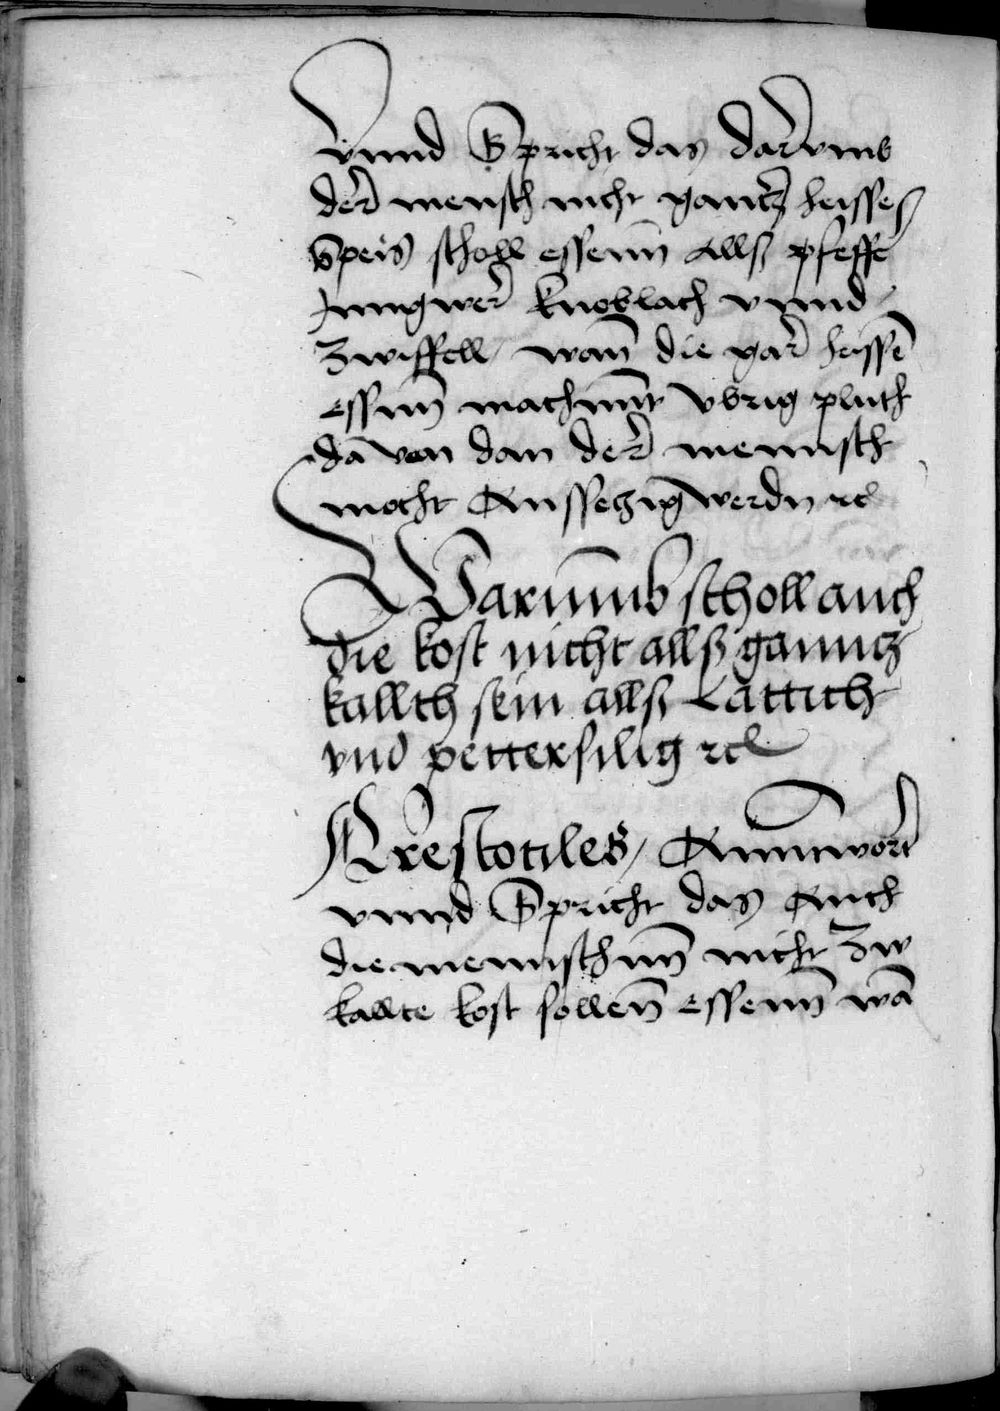 vnnd Spricht das darvmb
der mensch nicht gantz heisse
Speis scholl essenn allß pfeffe
Jungwer knoblach vnnd
zwiffell / wann die gar heissē
essenn machnnt vbrig pluth
da von dan der mennsch
mocht Aussetzig werdn rc
Warumb scholl auch
die kost nicht allß ganntz
kallth sein allß Lattich
vnd pettersilig rc
Arestotiles / Anntwort
vnnd Spricht das Auch
die mennschnn nicht zw
kallte kost sollenn essenn wā